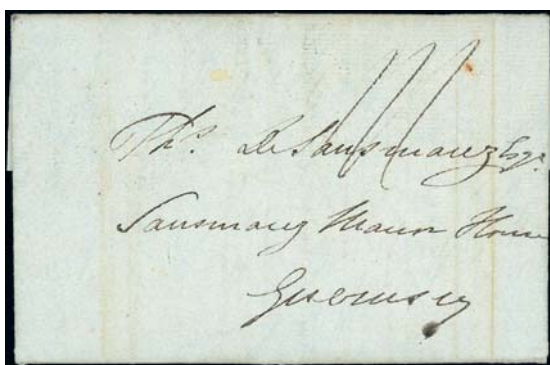 Thos. De Sausmarez Esqr.
Sausmarez Manor House
Guernsey